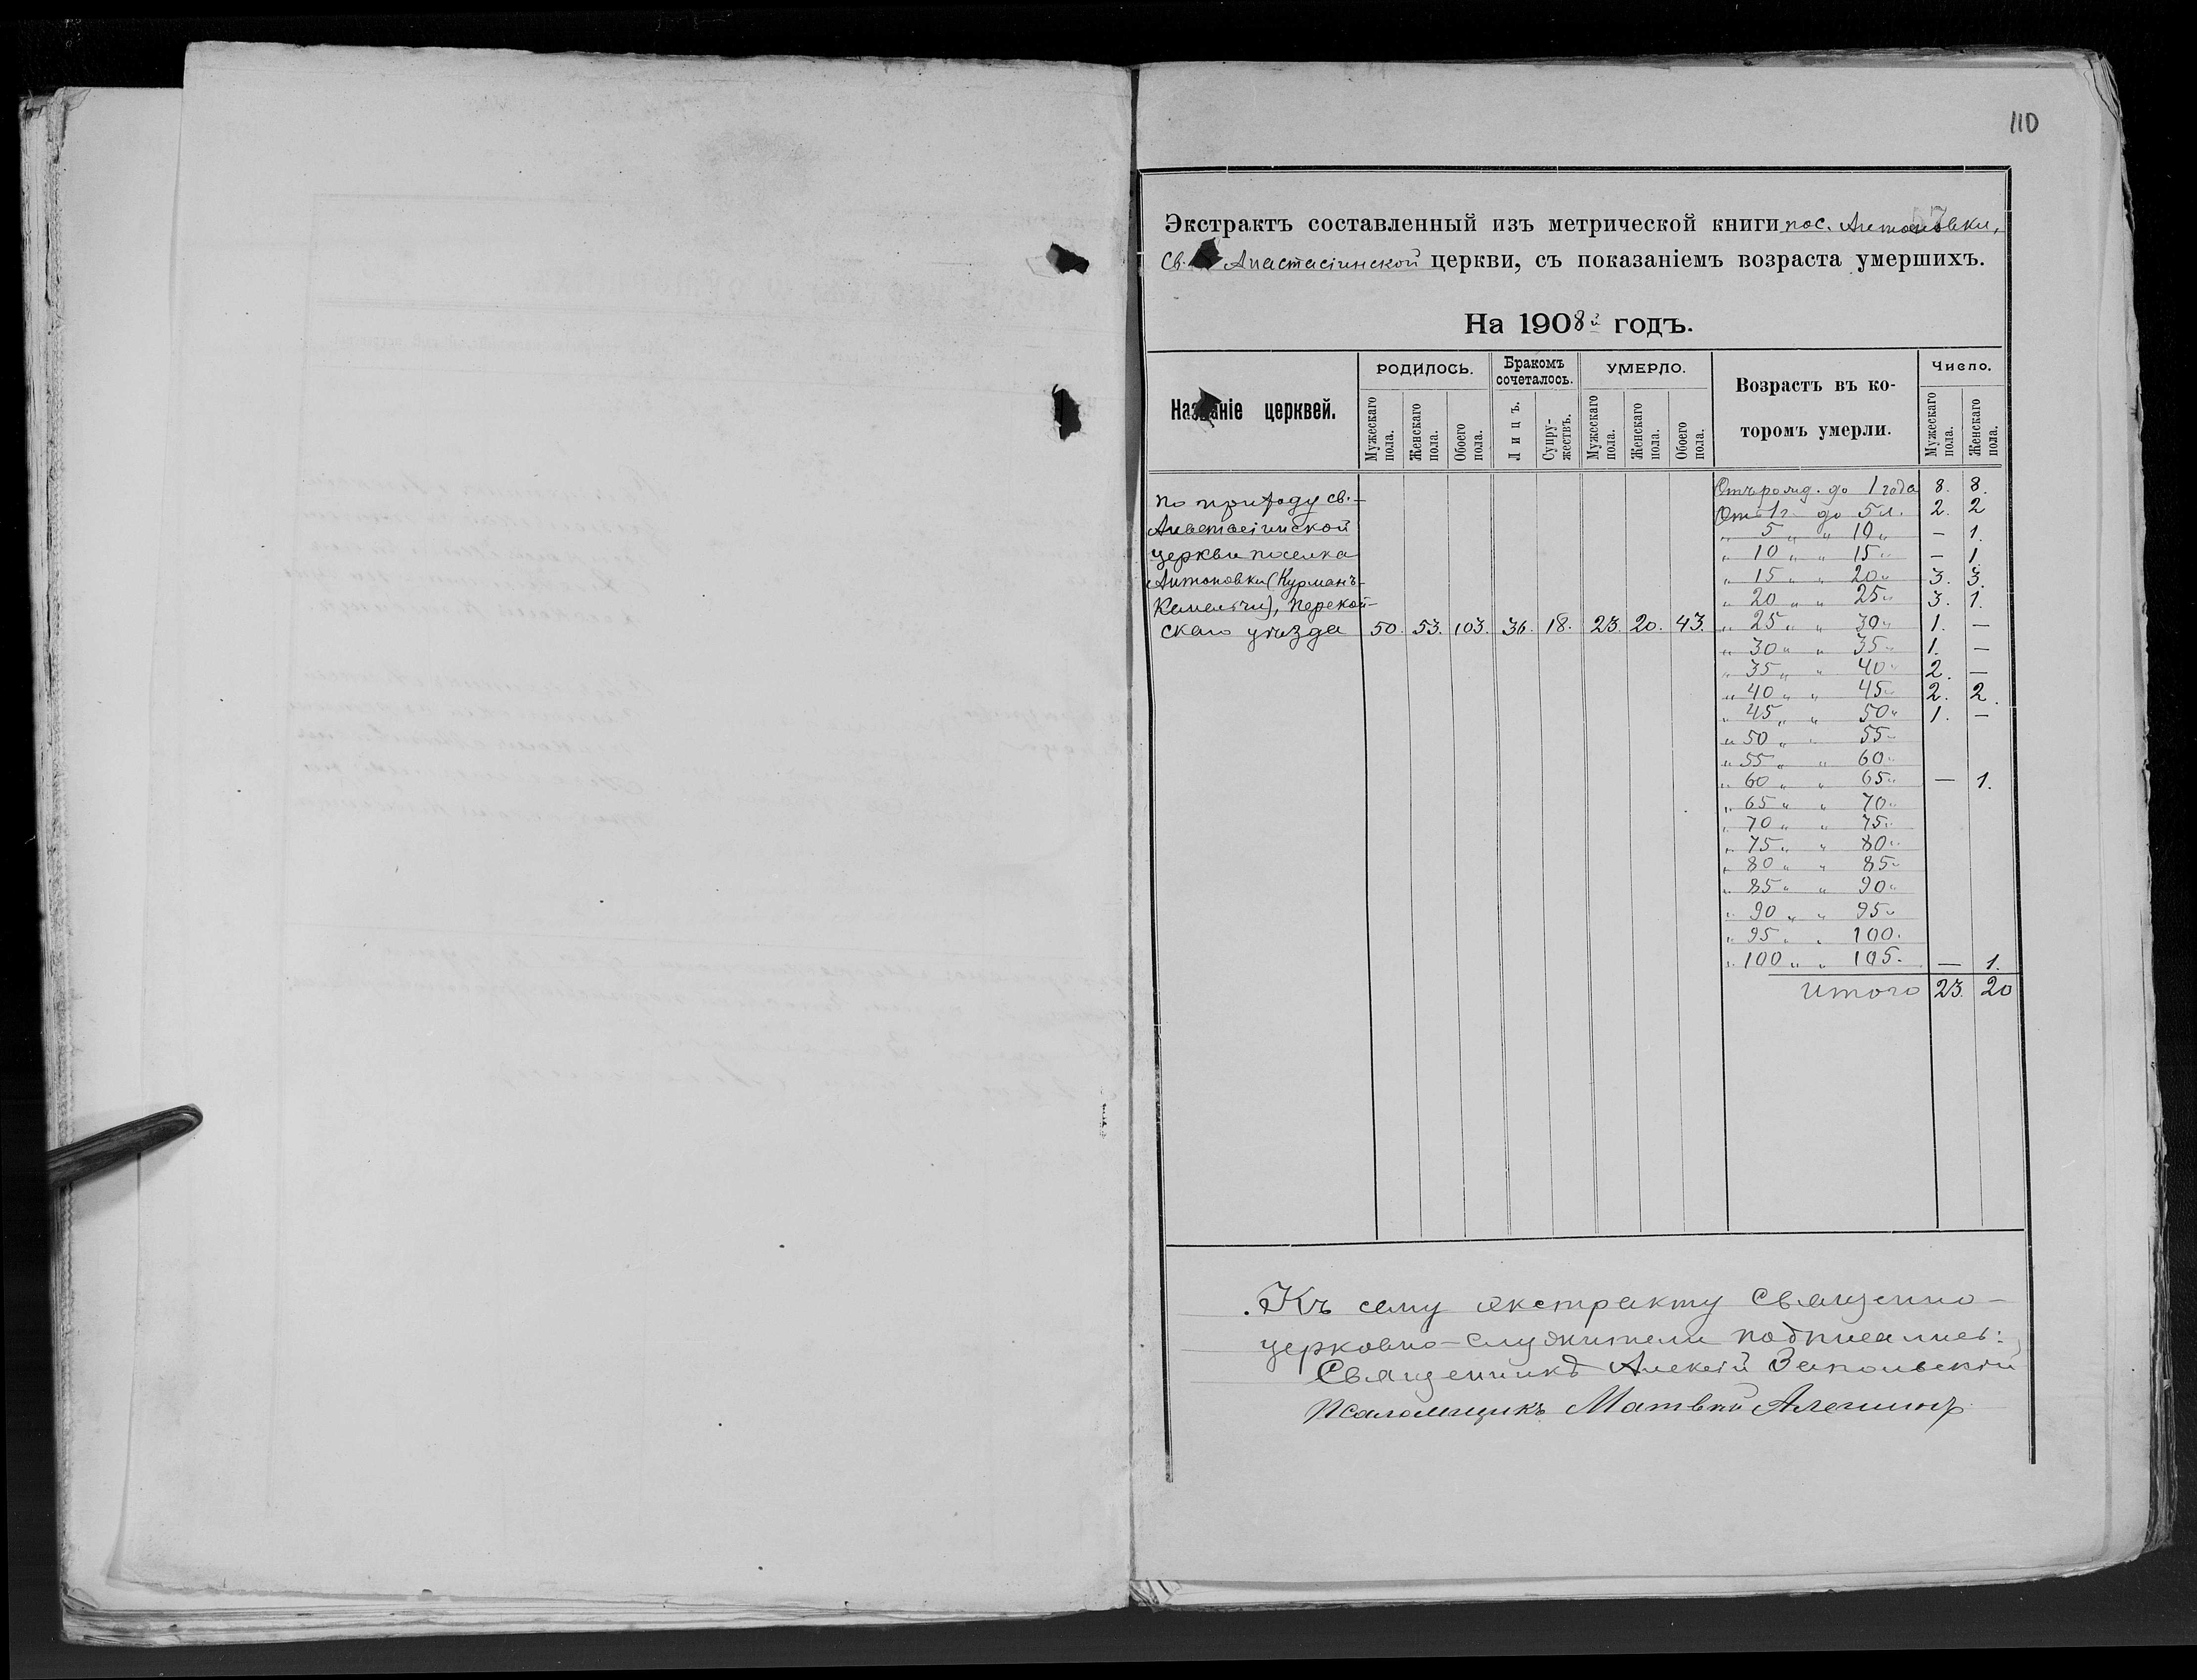 110
57
Экстрактъ составленный изъ метрической книги пос. Антоновки,
Св. Анастасіинской церкви, съ показаніемъ возраста умершихъ.
На 1908й годъ.
Названіе церквей.
РОДИЛОСЬ.
Мужескаго пола.
Женскаго пола.
Обоего пола.
Бракомъ сочеталось.
Лицъ.
Супружествъ.
УМЕРЛО.
Мужескаго пола.
Женскаго пола.
Обоего пола.
Возрастъ въ которомъ умерли.
Число.
Мужескаго пола.
Женскаго пола.
По приходу св.-
Анастасіинской
церкви поселка
Антоновки (Курманъ-
Кемельчи), Перекоп-
скаго уѣзда 50. 53. 103. 36. 18. 23. 20. 43.
Отъ рожд. до 1 года 8. 8.
Отъ 1 г. до 5 л. 2. 2
" 5 " " 10 " — 1.
" 10 " " 15 " — 1.
" 15 " " 20 " 3. 3.
" 20 " " 25 " 3. 1.
" 25 " " 30 " 1. —
" 30 " " 35 " 1. —
" 35 " " 40 " 2. —
" 40 " " 45 " 2. 2.
" 45 " " 50 " 1. —
" 50 " " 55 "
" 55 " " 60 "
" 60 " " 65 " — 1.
" 65 " " 70 "
" 70 " " 75 "
" 75 " " 80 "
" 80 " " 85 "
" 85 " " 90 "
" 90 " " 95 "
" 95 " " 100.
" 100 " " 105. — 1.
Итого 23. 20
Къ сему экстракту Священно-
церковно-служители подписались:
Священникъ Алексій Запольскій
Псаломщикъ Матвѣй Алешинъ